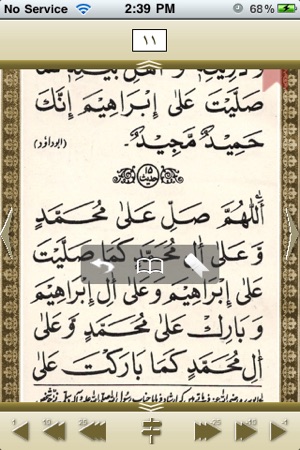 No Service 2:39 PM 68%
١١
صَلَّيْتَ عَلٰى إِبْرَاهِيْمَ إِنَّكَ
حَمِيْدٌ مَّجِيْدٌ.
(ابوداؤد)
حديث ١٥
أَللّٰهُمَّ صَلِّ عَلٰى مُحَمَّدٍ
وَّ عَلٰى أٰلِ مُحَمَّدٍ كَمَا صَلَّيْتَ
عَلٰى إِبْرَاهِيْمَ وَ عَلٰى أٰلِ إِبْرَاهِيْمَ
وَ بَارِكْ عَلٰى مُحَمَّدٍ وَّ عَلٰى
أٰلِ مُحَمَّدٍ كَمَا بَارَكْتَ عَلٰى
1 10 25 -25 -10 -1